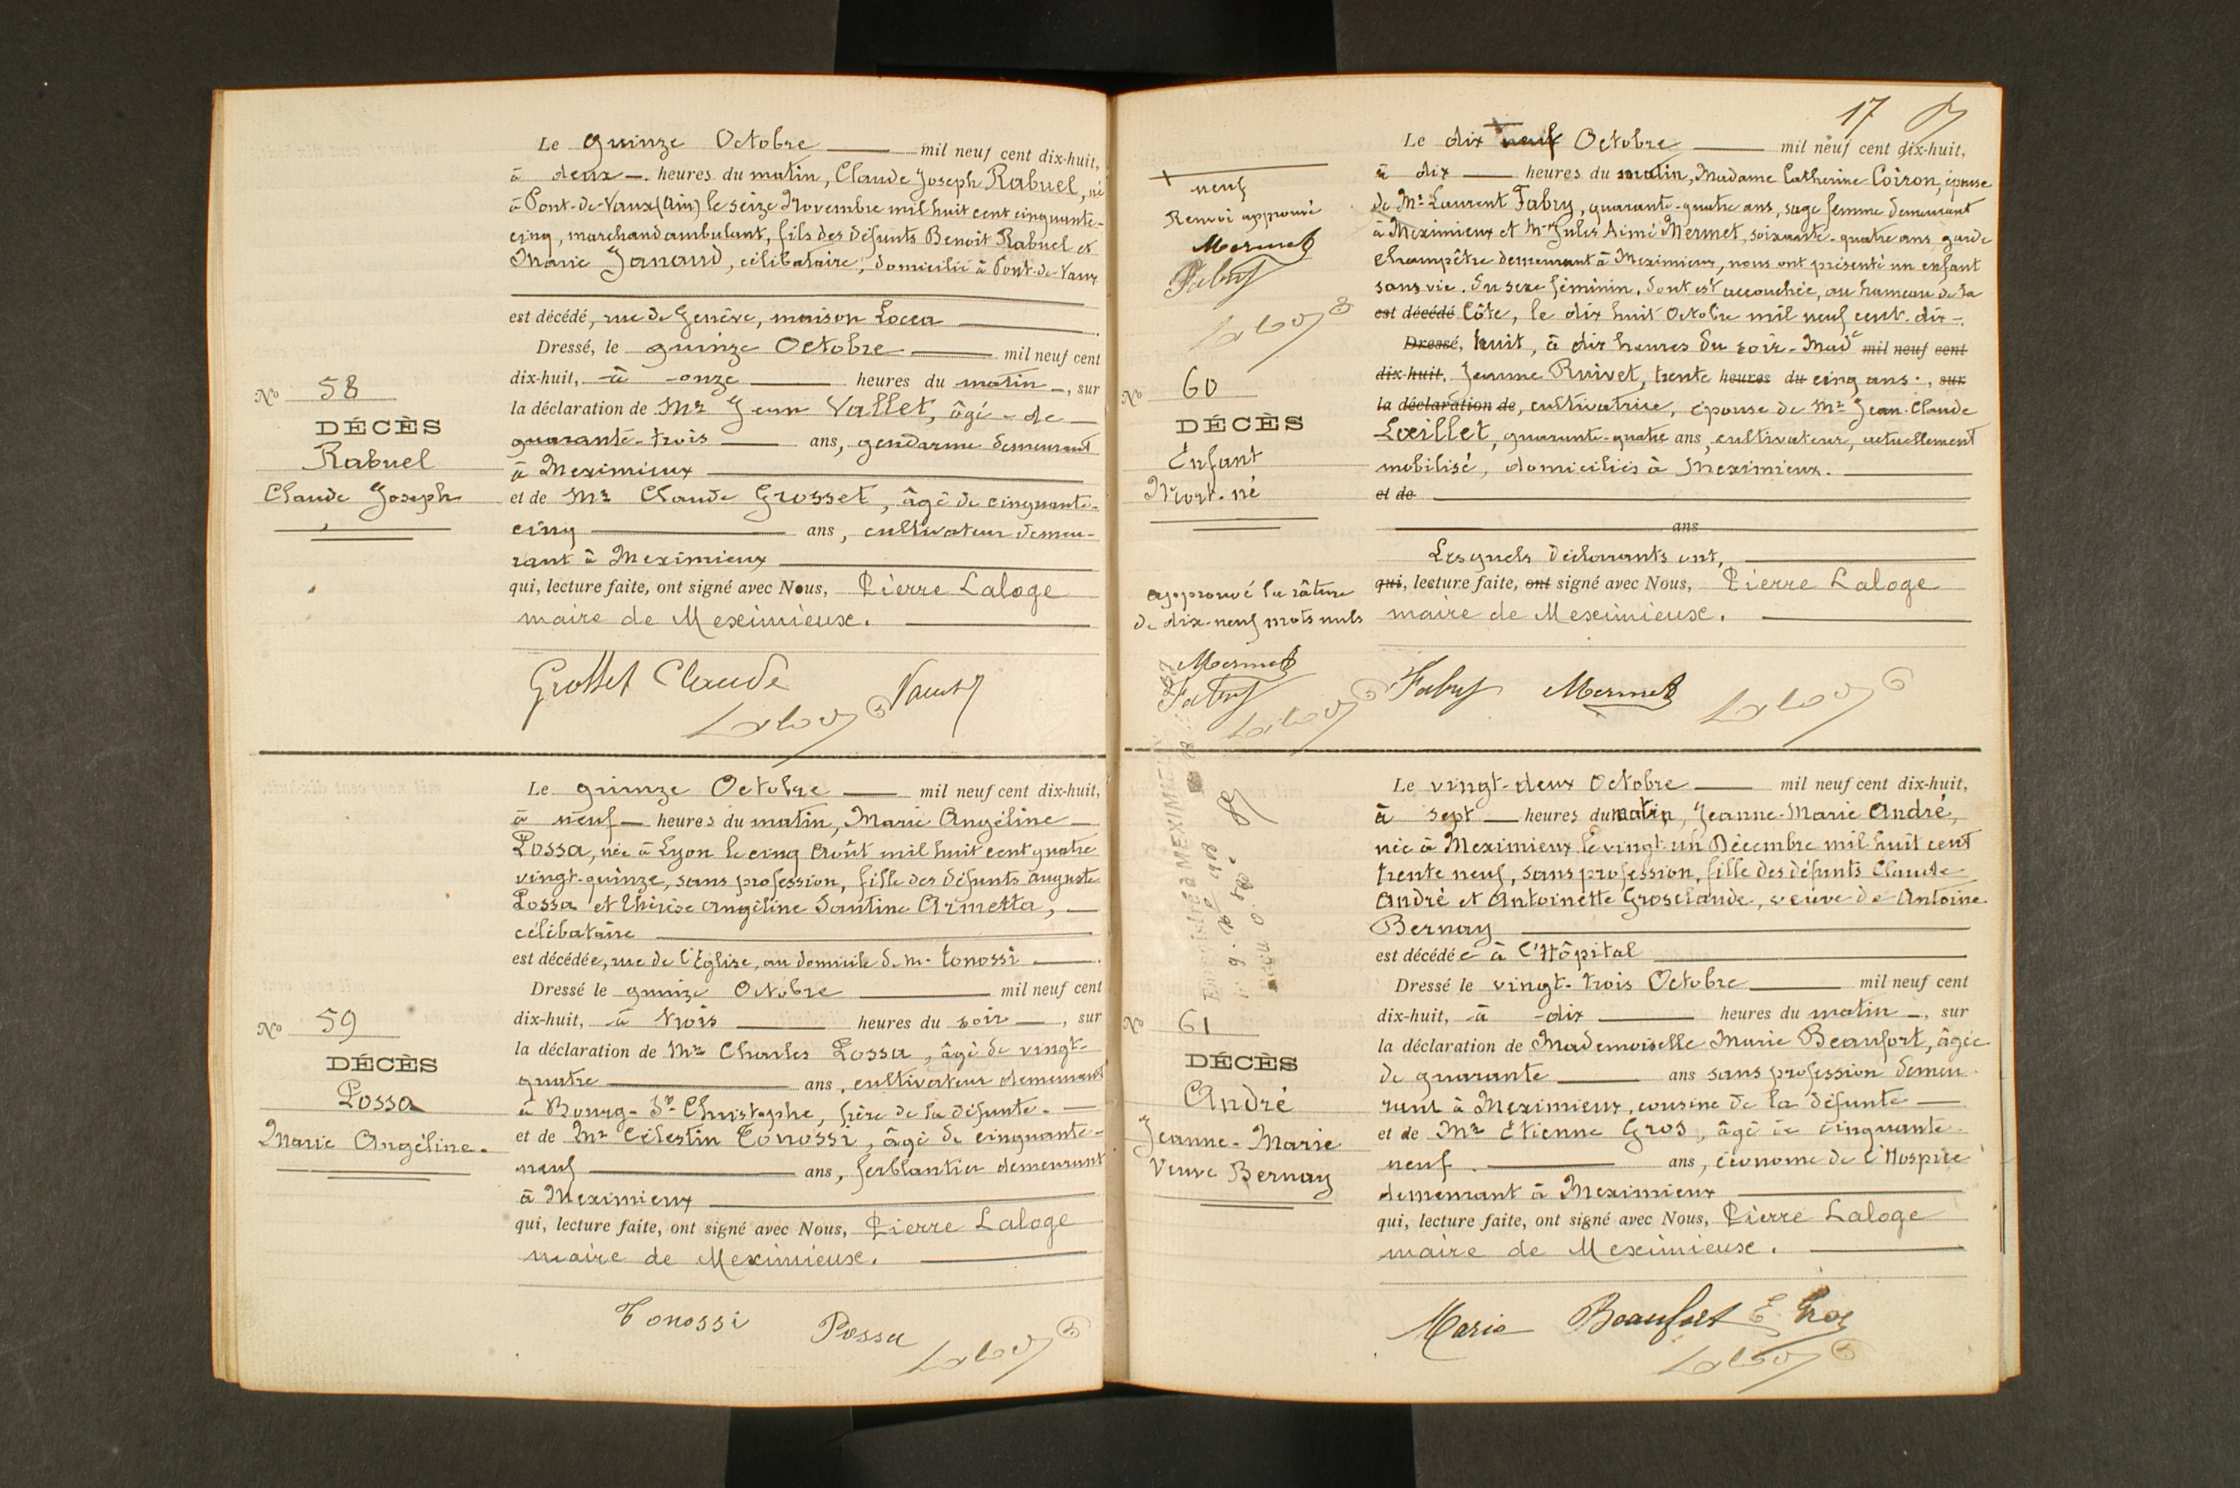 Le quinze Octobre mil neuf cent dix-huit,
à deux heures du matin, Claude Joseph Rabuel, né
à Pont-de-Vaux (Ain) le seize Novembre mil huit cent cinquante-
cinq, marchand ambulant, fils des défunts Benoît Rabuel et
Marie Janaud, célibataire, domicilié à Pont-de-Vaux
est décédé, rue de Genève, maison Locca
Dressé, le quinze Octobre mil neuf cent
dix-huit, à onze heures du matin, sur
No 58
la déclaration de Mr Jean Vallet, âgé de
DÉCÈS
quarante-trois ans, gendarme demeurant
Rabuel
à Meximieux
Claude Joseph
et de Mr Claude Grosset, âgé de cinquante-
cinq ans, cultivateur demeu-
rant à Meximieux
qui, lecture faite, ont signé avec Nous, Pierre Laloge
maire de Meximieux.
Grosset Claude
Laloge
Le quinze Octobre mil neuf cent dix-huit,
à neuf heures du matin, Marie Angéline
Possa, née à Lyon le cinq Août mil huit cent quatre
vingt-quinze, sans profession, fille des défunts Auguste
Possa et Thérèse Angéline Santine Armetta,
célibataire
est décédée, rue de l'Eglise, au domicile de M. Tonossi
Dressé le quinze Octobre mil neuf cent
No 59
dix-huit, à trois heures du soir, sur
DÉCÈS
la déclaration de Mr Charles Possa, âgé de vingt-
Possa
quatre ans, cultivateur demeurant
à Bourg-St-Christophe, frère de la défunte.
Marie Angéline.
et de Mr Célestin Tonossi, âgé de cinquante-
neuf ans, ferblantier demeurant
à Meximieux
qui, lecture faite, ont signé avec Nous, Pierre Laloge
maire de Meximieux.
Tonossi Possa
Laloge
17
Le dix neuf Octobre mil neuf cent dix-huit,
neuf
Renvoi approuvé
Mermet
Fabry
Laloge
à dix heures du matin, Madame Catherine Coiron, épouse
de Mr Laurent Fabry, quarante-quatre ans, sage femme demeurant
à Meximieux et Mr Jules Aimé Mermet, soixante-quatre ans garde
champêtre demeurant à Meximieux, nous ont présenté un enfant
sans vie. Du sexe féminin, dont est accouchée, au hameau de la
est décédé Côte, le dix huit Octobre mil neuf cent-dix-
Dressé, huit, à dix heures du soir. Made mil neuf cent
No 60
dix-huit, Jeanne Ruivet, trente heures du cinq ans, sur
DÉCÈS
la déclaration de, cultivatrice, épouse de Mr Jean-Claude
Enfant
Lœillet, quarante-quatre ans, cultivateur, actuellement
Mort-né
mobilisé, domiciliés à Meximieux.
et de
ans
Lesquels déclarants ont,
approuvé la râture
de dix-neuf mots nuls
Mermet
Fabry
Laloge
qui, lecture faite, ont signé avec Nous, Pierre Laloge
maire de Meximieux.
Fabry Mermet Laloge
Le vingt-deux Octobre mil neuf cent dix-huit,
à sept heures du matin, Jeanne-Marie André,
née à Meximieux le vingt-un Décembre mil huit cent
trente neuf, sans profession, fille des défunts Claude
André et Antoinette Grosclaude, veuve de Antoine
Bernay
est décédée à l'Hôpital
Dressé le vingt-trois Octobre mil neuf cent
No 61
dix-huit, à dix heures du matin, sur
DÉCÈS
la déclaration de Mademoiselle Marie Beaufort, âgée
André
de quarante ans sans profession demeu-
Jeanne-Marie
rant à Meximieux, cousine de la défunte
Veuve Bernay
et de Mr Etienne Gros, âgé de cinquante-
neuf ans, économe de l'Hospice
demeurant à Meximieux
qui, lecture faite, ont signé avec Nous, Pierre Laloge
maire de Meximieux.
Marie Beaufort E. Gros
Laloge